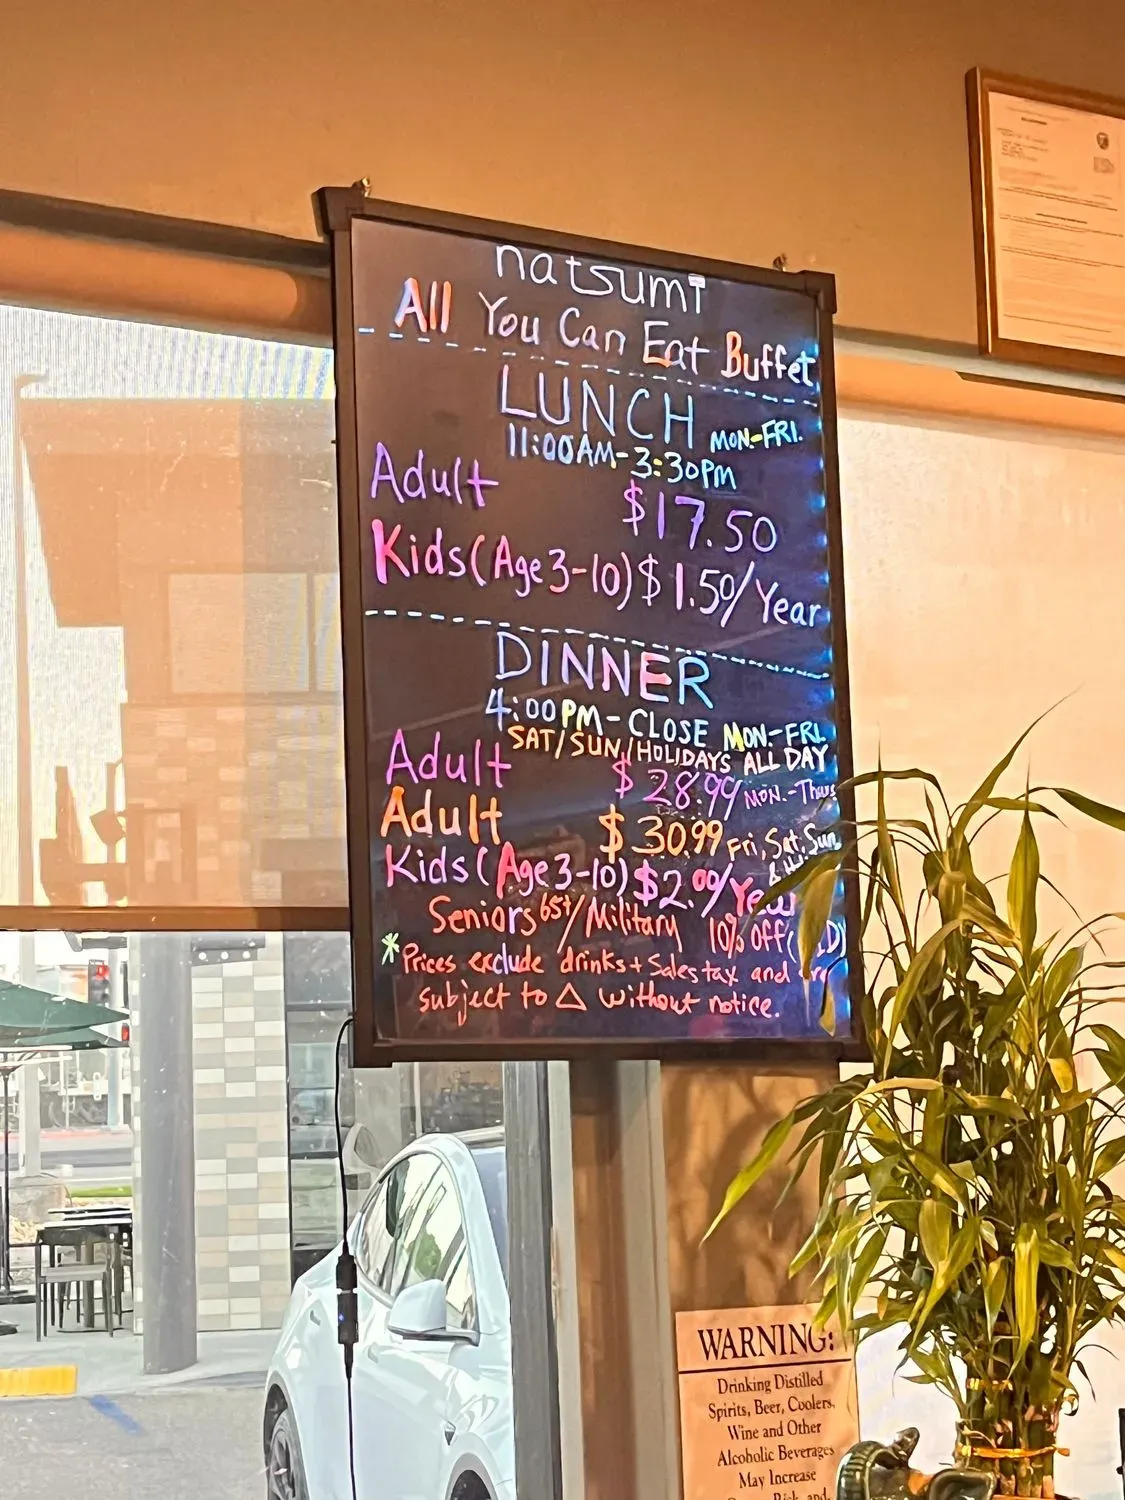 natsumi
All You Can Eat Buffet
LUNCH MON-FRI.
11:00AM-3:30PM
Adult $17.50
Kids (Age 3-10) $1.50/Year
DINNER
4:00PM-CLOSE MON-FRI.
SAT/SUN/HOLIDAYS ALL DAY
Adult $28.99 MON.-Thurs
Adult $30.99 Fri, Sat, Sun
Kids (Age 3-10) $2.00/Year
Seniors 65+/Military 10% Off
*Prices exclude drinks + Sales tax and
subject to △ without notice.
WARNING:
Drinking Distilled
Spirits, Beer, Coolers,
Wine and Other
Alcoholic Beverages
May Increase